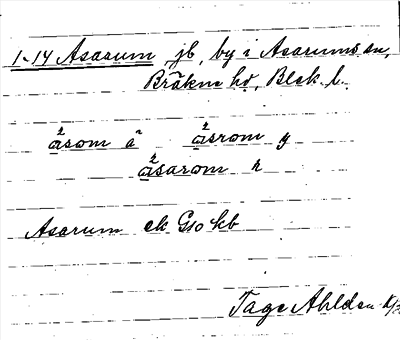 1-14 Asarum, jb, by i Asarums sn,
Bräkne hd, Blek. l.
åsom ä åsrom y
åsarom h
Asarum ek G10 kb
Tage Ahldén